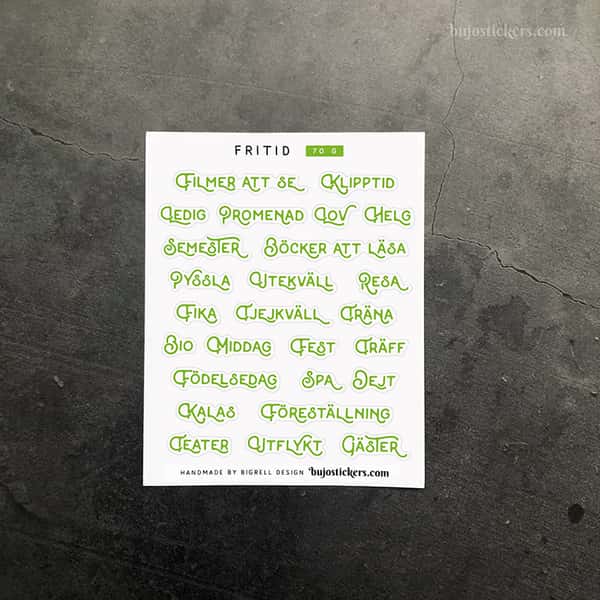 bujostickers.com
FRITID 70 G
FILMER ATT SE KLIPPTID
LEDIG PROMENAD LOV HELG
SEMESTER BÖCKER ATT LÄSA
PYSSLA UTEKVÄLL RESA
FIKA TJEJKVÄLL TRÄNA
BIO MIDDAG FEST TRÄFF
FÖDELSEDAG SPA DEJT
KALAS FÖRESTÄLLNING
TEATER UTFLYKT GÄSTER
HANDMADE BY BIGRELL DESIGN bujostickers.com